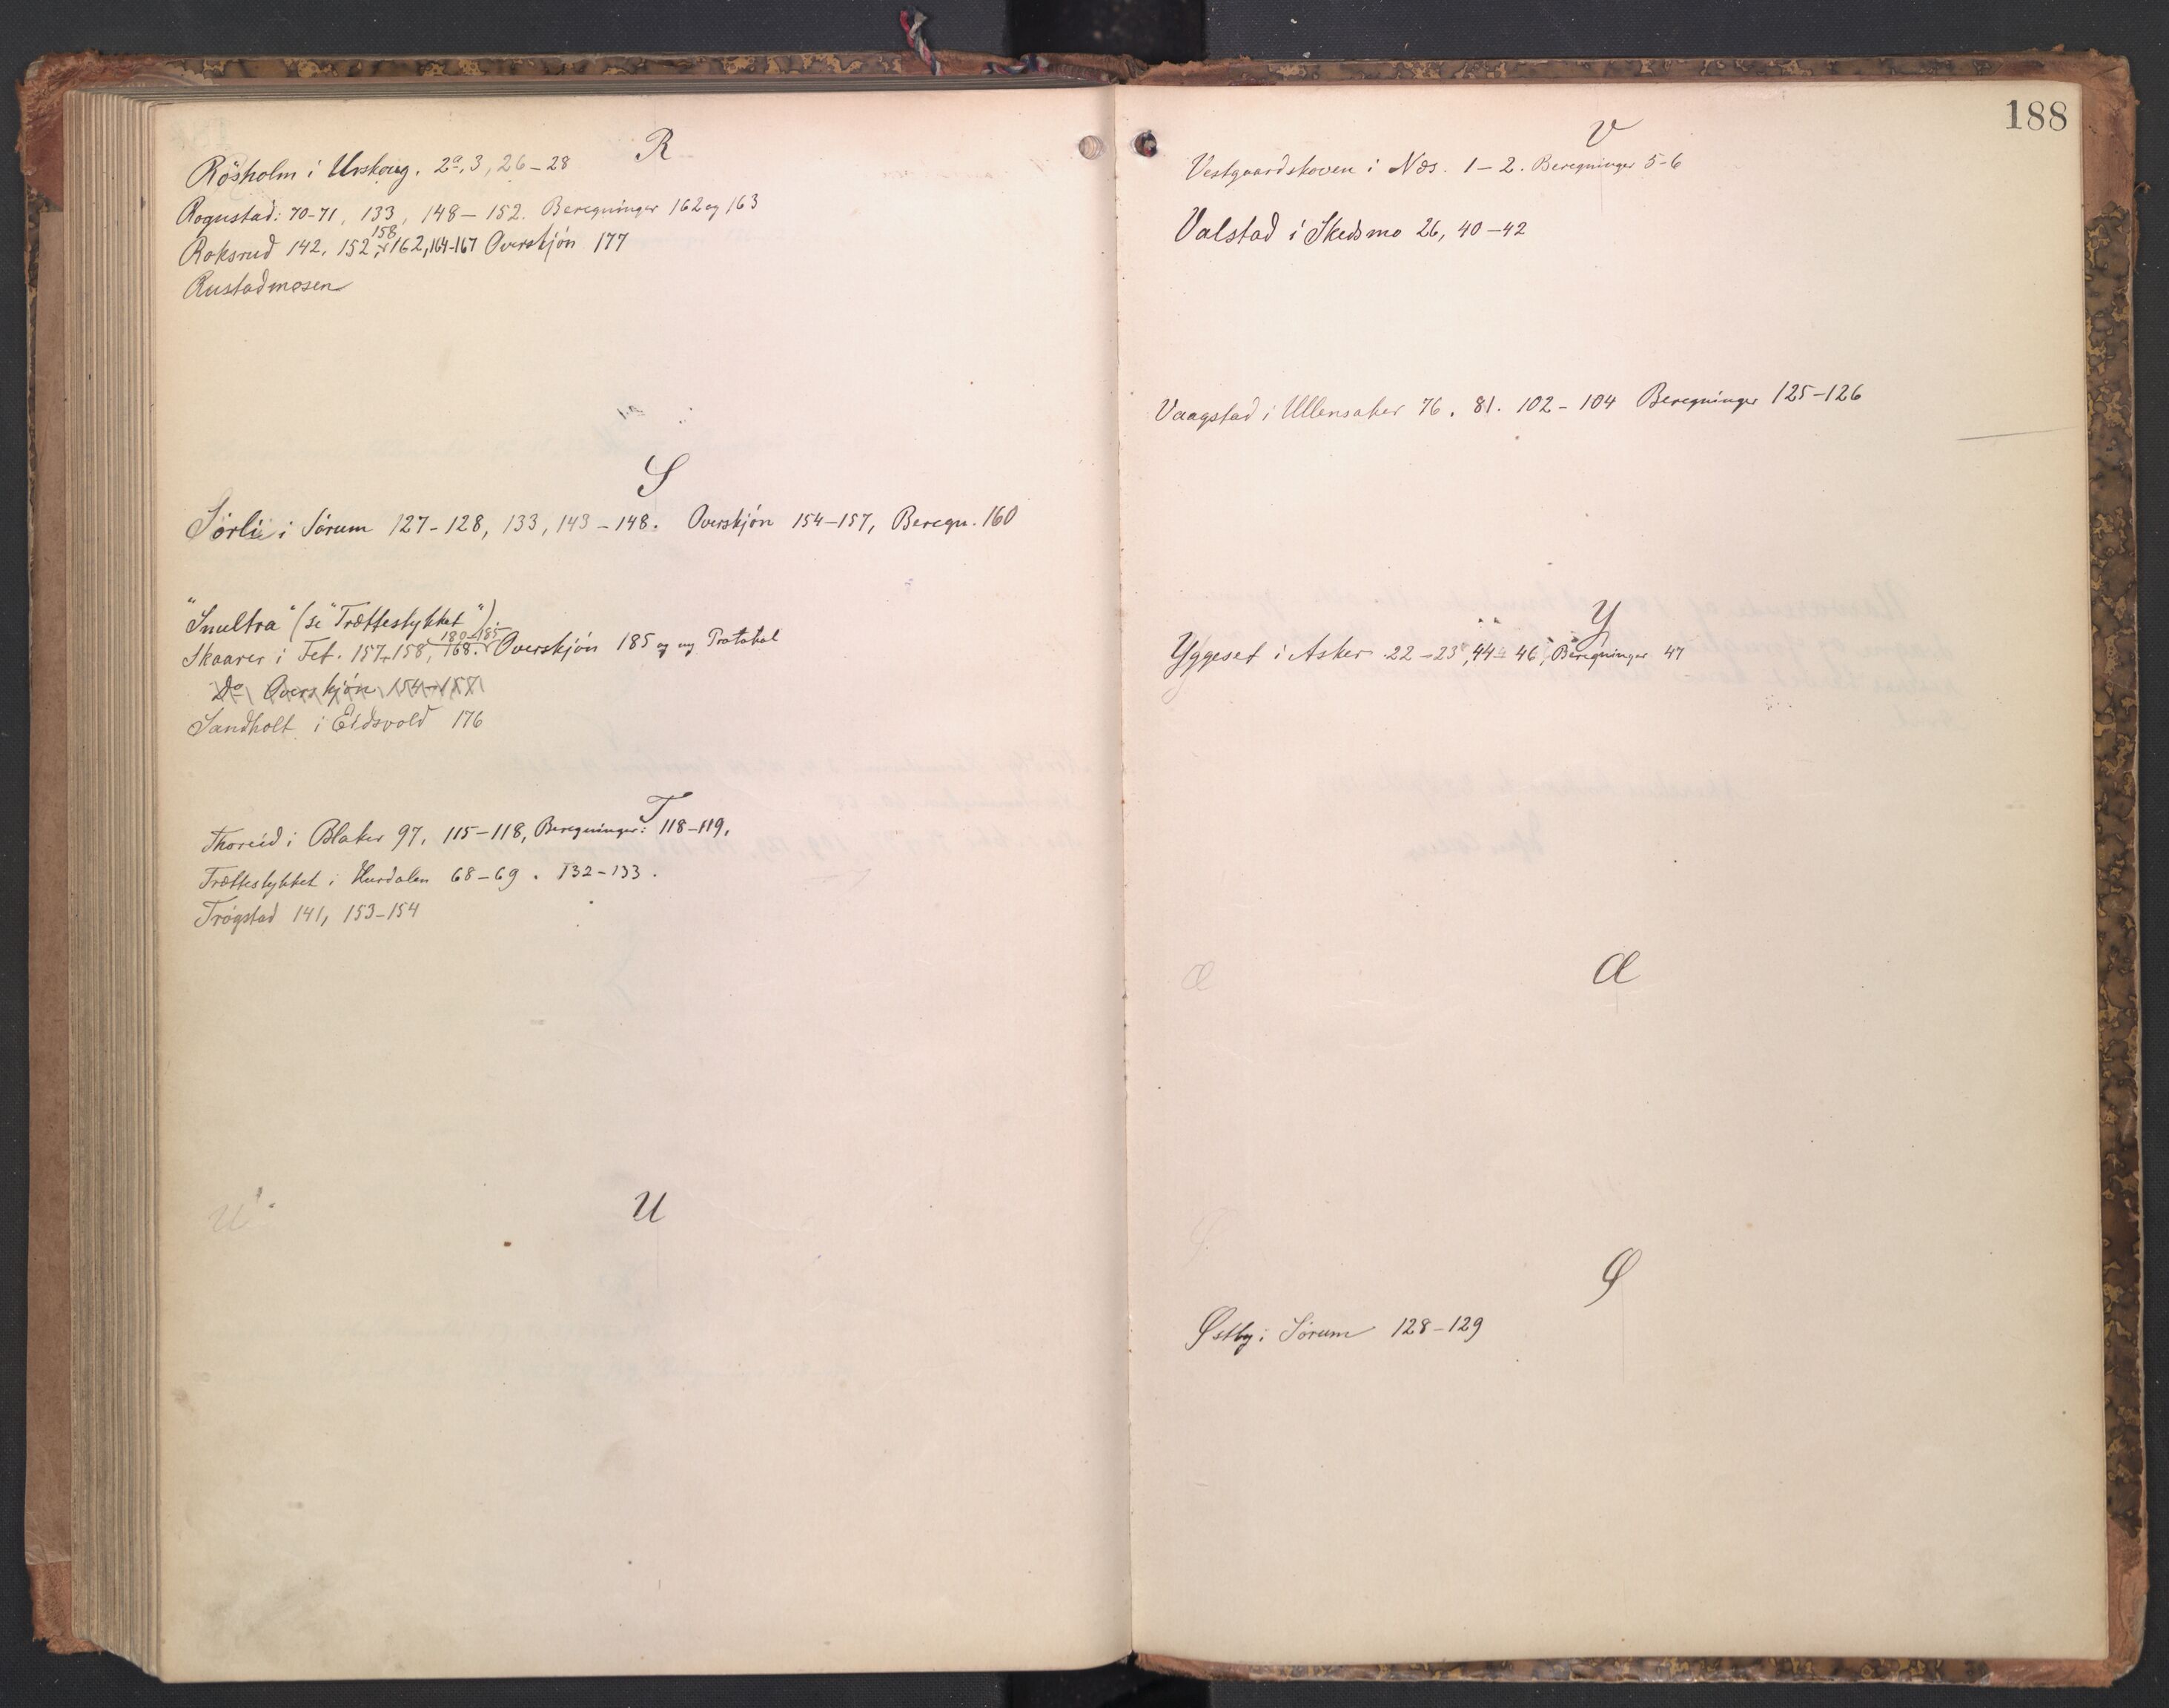 R
Rösholm i Urskoug. 2a, 3, 26–28
Rogustad: 70–71, 133, 148–152. Beregninger 162 og 163
Roksrud 142, 152, 158, 162, 164–167 Overskjön 177
Rustadmosen
S
Sörli i Sörum 127–128, 133, 143–148. Overskjön 154–157, Beregn. 160
"Snultra" (se "Trættestykket")
Skaarer i Fet. 157, 158, 168. 180–185 Overskjön 185 og ny Protokol
Do Overskjön 154–157
Sandholt i Eidsvold 176
T
Thoreid i Blaker 97, 115–118, Beregninger: 118–119.
Trættestykket i Hurdalen 68–69. 132–133.
Trögstad 141, 153–154
U
U
188
V
Vestgaardskoven i Næs. 1–2. Beregninger 5–6
Valstad i Skedsmo 26, 40–42
Vaagstad i Ullensaker 76. 81. 102–104 Beregninger 125–126
Y
Yggeset i Asker 22–23, 44–46, Beregninger 47
Æ
Æ
Ø
Ø
Østby i Sörum 128–129